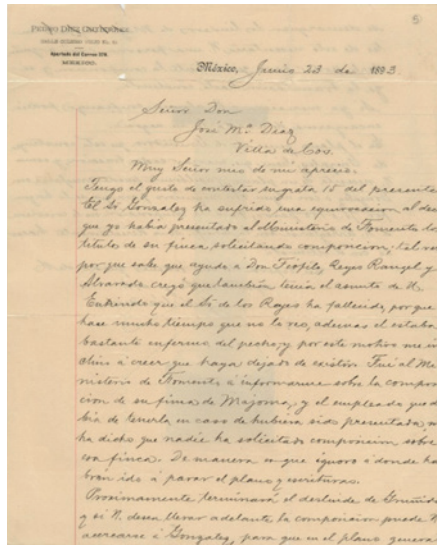 5
PEDRO DIEZ GUTIERREZ
Apartado del Correo 278.
MEXICO.
México, Junio 23 de 1893.
Señor Don
José Ma. Diaz
Villa de Cos.
Muy Señor mio de mi aprecio.
Tengo el gusto de contestar su grata 15 del presente
El Sr Gonzalez ha sufrido una equivocacion al
que yo habia presentado al Ministerio de Fomento los
titulos de su finca solicitando composicion, tal vez
por que sabe que ayudo a Don Teófilo, Reyes Rangel y
Alvarado creyó que tambien tenia el asunto de U.
Entiendo que el Sr de los Reyes ha fallecido, porque
hase mucho tiempo que no lo veo, ademas el estaba
bastante enfermo del pecho, y por este motivo me in
clino á creer que haya dejado de existir. Fui al Mi
nisterio de Fomento á informarme sobre la compo
cion de su finca de Majoma, y el empleado que
bia de tenerla en caso de hubiera sido presentada,
ha dicho que nadie ha solicitado composicion sobre
esa finca. De manera es que ignoro á donde ha
brán ido á parar el plano y escrituras.
Proximamente terminará el deslinde de Gruñido
y si U. desea llevar adelante la composicion puede
acercarse á Gonzalez, para que en el plano genera